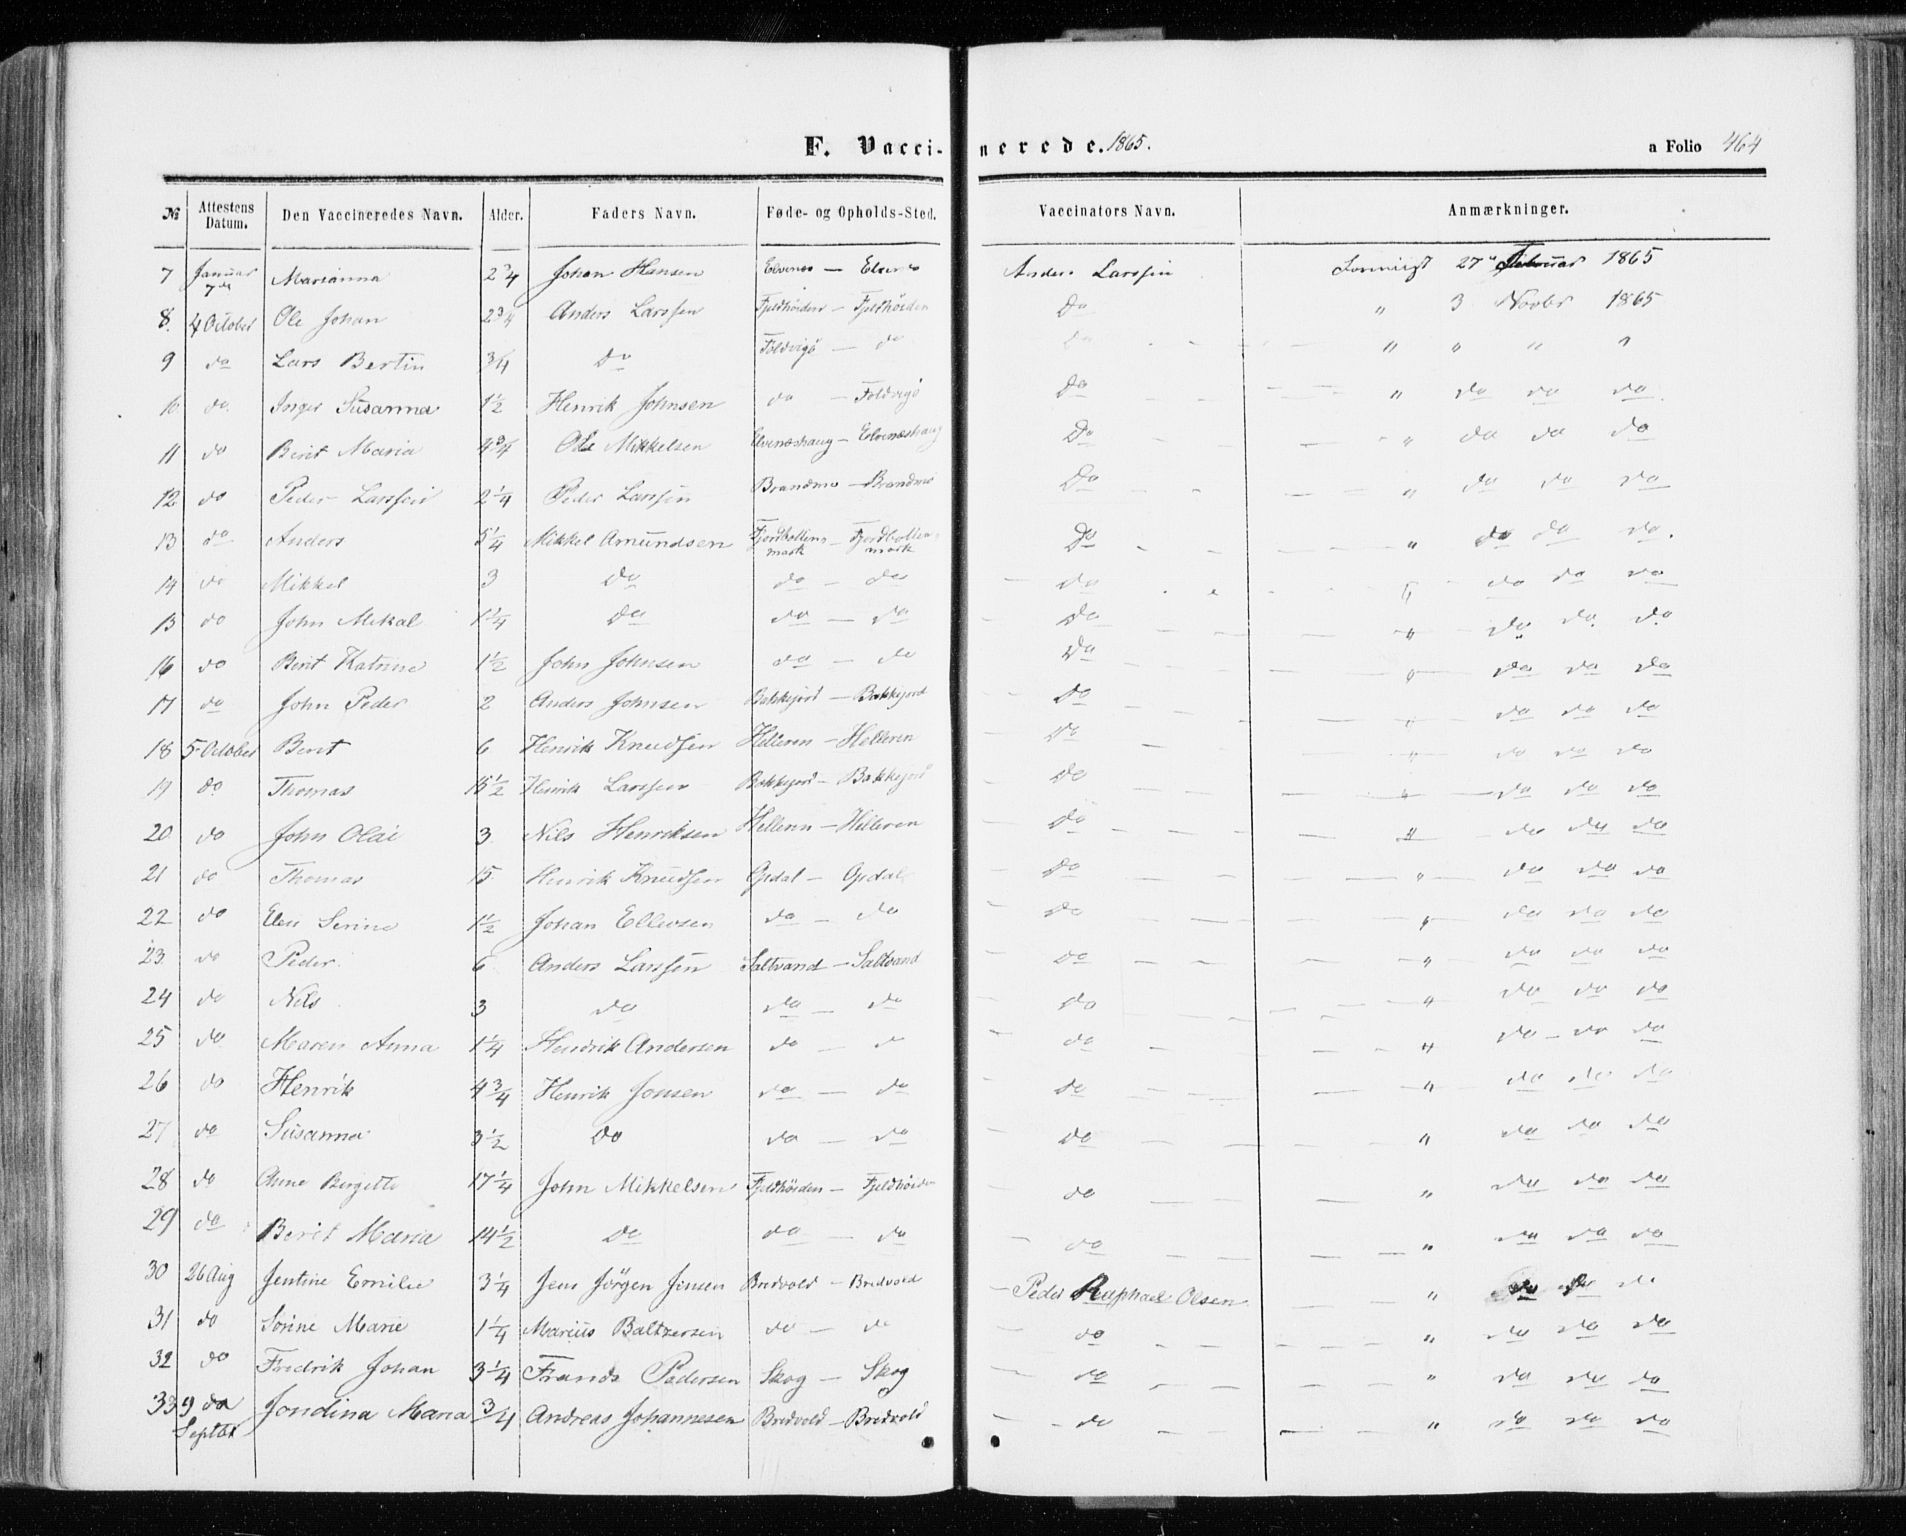 F. Vaccinerede. 1865. a Folio 464
№ Attestens Datum. Den Vaccineredes Navn. Alder. Faders Navn. Føde- og Opholds-Sted. Vaccinators Navn. Anmærkninger.
7 Januar 7de Marianna 2 3/4 Johan Hansen Elvenes — Elvenes Anders Larssen 27 Februar 1865
8. 4 October Ole Johan 2 3/4 Anders Larssen Fjeldhöiden — Fjeldhöiden Do " 3 Novbr 1865
9 do Lars Bertin 3/4 Do Foldvigö — do Do " " " "
10 do Inger Susanna 1 1/2 Henrik Johnsen do — Foldvigö Do " do do do
11 do Berit Maria 4 3/4 Ole Mikkelsen Elvenæshaug — Elvenæshaug Do " do do do
12 do Peder Larssen 2 1/4 Peder Larssen Brandmo — Brandmo Do " do do do
13 do Anders 5 1/4 Mikkel Amundsen Fjordbottenmark — Fjordbottenmark Do " do do do
14 do Mikkel 3 Do do — do do " do do do
15 do John Mikal 1 1/4 Do do — do Do " do do do
16 do Berit Katrine 1 1/2 John Johnsen do — do Do " do do do
17 do John Peder 2 Anders Johnsen Bakkejord — Bakkejord Do " do do do
18 5 October Berit 6 Henrik Knudsen Helleren — Helleren Do " do do do
19 do Thomas 15 1/2 Henrik Larssen Bakkejord — Bakkejord Do " do do do
20 do John Olai 3 Nils Henriksen Helleren — Helleren Do " do do do
21 do Thomas 15 Henrik Knudsen Opdal — Opdal Do " do do do
22 do Elen Serine 1 1/2 Johan Ellevsen do — do Do " do do do
23 do Peder 6 Anders Larssen Saltvand — Saltvand Do " do do do
24 do Nils 3 do do — do Do " do do do
25 do Maren Anna 1 1/4 Hendrik Andersen do — do do " do do do
26 do Henrik 4 3/4 Henrik Jonsen do — do Do " do do do
27 do Susanna 3 1/2 Do do — do Do " do do do
28 do Anne Birgitte 17 1/4 John Mikkelsen Fjeldhöiden — Fjeldhöiden do " do do do
29 do Berit Maria 14 1/2 Do do — do do " do do do
30 26 Aug Jentine Emilie 3 1/4 Jens Jörgen Jensen Bredvold — Bredvold Peder Raphael Olsen " do do do
31 do Sörine Marie 1 1/4 Marius Baltzersen do — do do " do do do
32 do Fredrik Johan 3 1/4 Frands Pedersen Skog — Skog do " do do do
33 9 do Septbr Jondina Maria 3/4 Andreas Johannesen Bredvold — Bredvold do " do do do